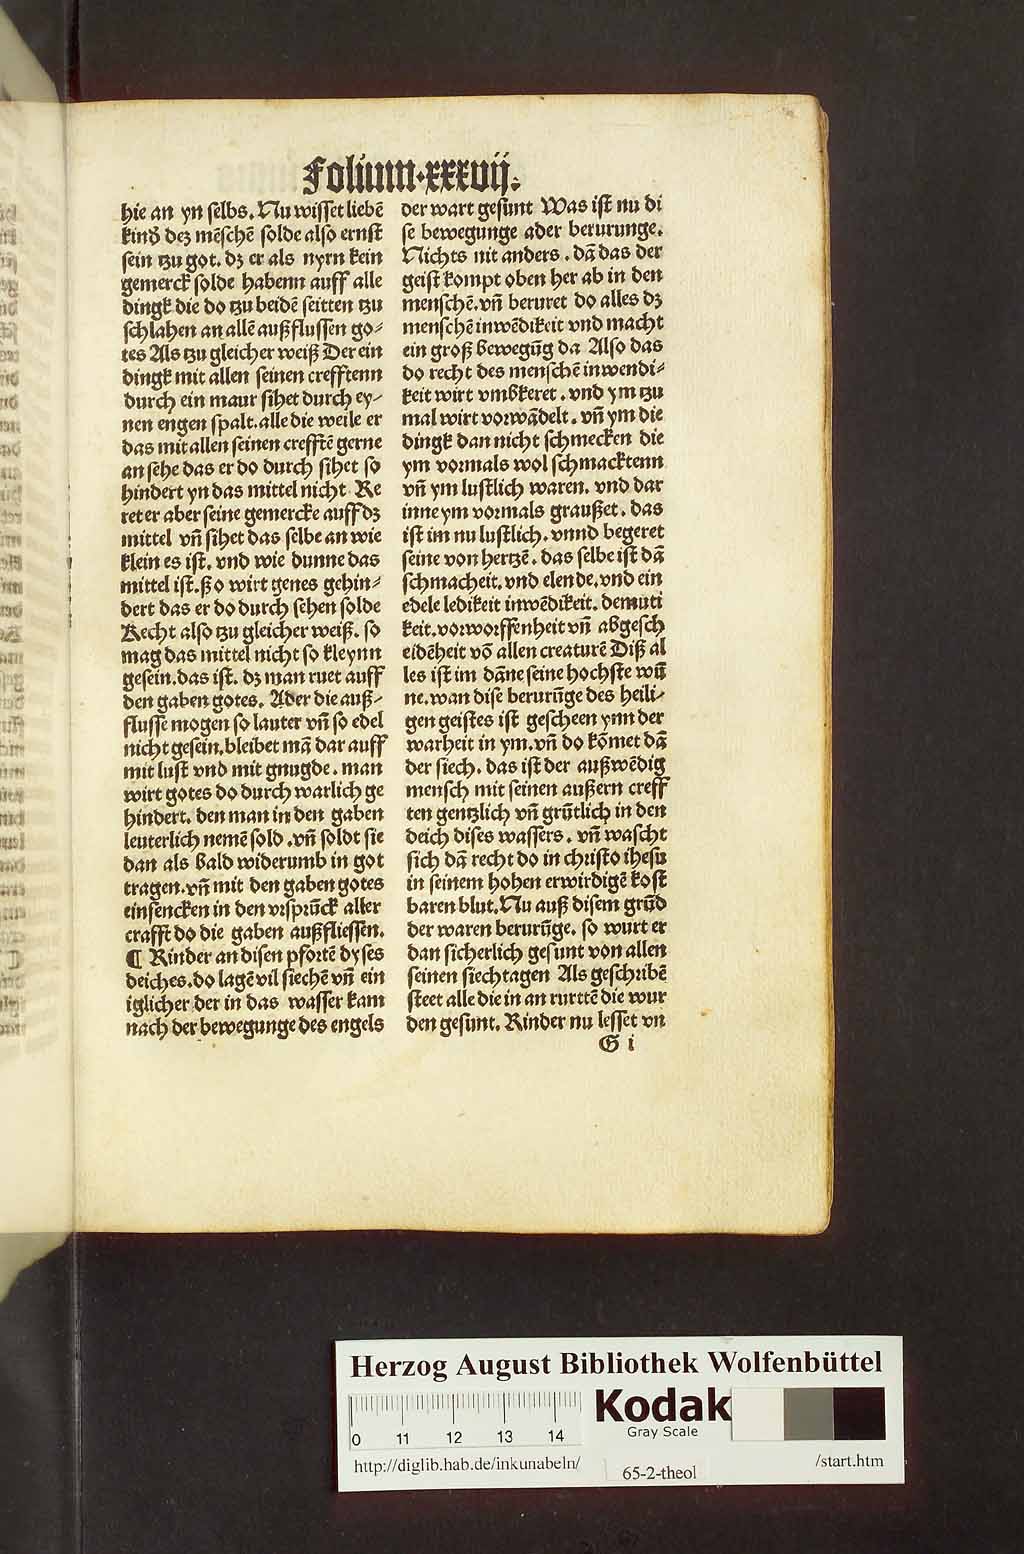 Folium·xxxvij.
hie an yn selbs. Nu wisset liebē
kind dez mēschē solde also ernst
sein tzu got. dz er als nyrn kein
gemerck solde habenn auff alle
dingk die do tzu beidē seitten tzu
schlahen an allē außflussen go-
tes Als tzu gleicher weiß Der ein
dingk mit allen seinen crefftenn
durch ein maur sihet durch ey-
nen engen spalt. alle die weile er
das mit allen seinen crefftē gerne
an sehe das er do durch sihet so
hindert yn das mittel nicht Ke
ret er aber seine gemercke auff dz
mittel vn̄ sihet das selbe an wie
klein es ist. vnd wie dunne das
mittel ist. ßo wirt genes gehin-
dert das er do durch sehen solde
Recht also tzu gleicher weiß. so
mag das mittel nicht so kleynn
gesein. das ist. dz man ruet auff
den gaben gotes. Ader die auß-
flusse mogen so lauter vn̄ so edel
nicht gesein. bleibet mā dar auff
mit lust vnd mit gnugde. man
wirt gotes do durch warlich ge
hindert. den man in den gaben
leuterlich nemē sold .vn̄ soldt sie
dan als bald widerumb in got
tragen. vn̄ mit den gaben gotes
einsencken in den vrsprūck aller
crafft do die gaben außfliessen.
¶ Kinder an disen pfortē dyses
deiches. do lagē vil siechē vn̄ ein
iglicher der in das wasser kam
nach der bewegunge des engels
der wart gesunt Was ist nu di
se bewegunge ader berurunge.
Nichts nit anders . dā das der
geist kompt oben her ab in den
menschē. vn̄ beruret do alles dz
menschē inwēdikeit vnd macht
ein groß bewegūg da Also das
do recht des menschē inwendi-
keit wirt vmbkeret . vnd ym tzu
mal wirt vorwādelt . vn̄ ym die
dingk dan nicht schmecken die
ym vormals wol schmacktenn
vn̄ ym lustlich waren. vnd dar
inne ym vormals graußet . das
ist im nu lustlich. vnnd begeret
seine von hertzē . das selbe ist dā
schmacheit. vnd elende. vnd ein
edele ledikeit inwēdikeit. demuti
keit. vorworffenheit vn̄ abgesch
eidēheit vō allen creaturē Diß al
les ist im dāne seine hochste wū
ne. wan dise berurūge des heili-
gen geistes ist gescheen ynn der
warheit in ym. vn̄ do kōmet dā
der siech. das ist der außwēdig
mensch mit seinen außern creff
ten gentzlich vn̄ grūtlich in den
deich dises wassers. vn̄ wascht
sich dā recht do in christo ihesu
in seinem hohen erwirdigē kost
baren blut. Nu auß disem grūd
der waren berurūge. so wurt er
dan sicherlich gesunt von allen
seinen siechtagen Als geschribē
steet alle die in an rurttē die wur
den gesunt. Kinder nu lesset vn
G i
Herzog August Bibliothek Wolfenbüttel
0 11 12 13 14
Kodak
Gray Scale
http://diglib.hab.de/inkunabeln/
65-2-theol
/start.htm